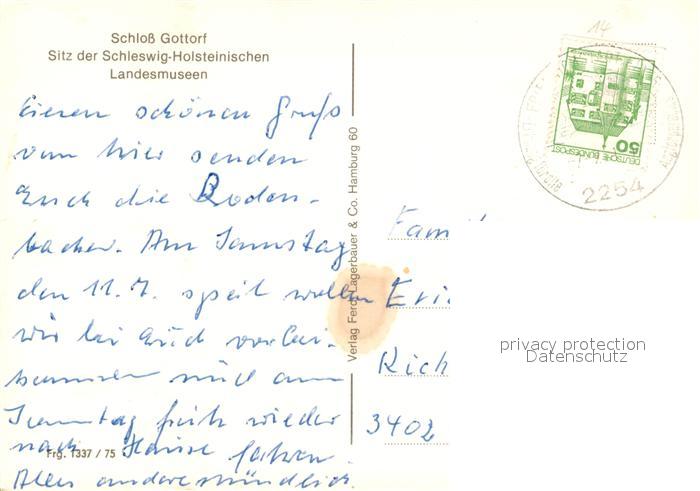 Schloß Gottorf
Sitz der Schleswig-Holsteinischen
Landesmuseen
Einen schönen Gruß
von hier senden
Euch die Roden-
bacher. Am Samstag
den 11.7. spät wollen
wir bei Euch vorbei-
kommen und am
Sonntag früh wieder
nach Hause fahren.
Alles andere mündlich.
Frg. 1337 / 75
Verlag Ferd. Lagerbauer & Co. Hamburg 60
14
50
DEUTSCHE BUNDESPOST
2254
Fami
Eri
Rich
3402
privacy protection
Datenschutz